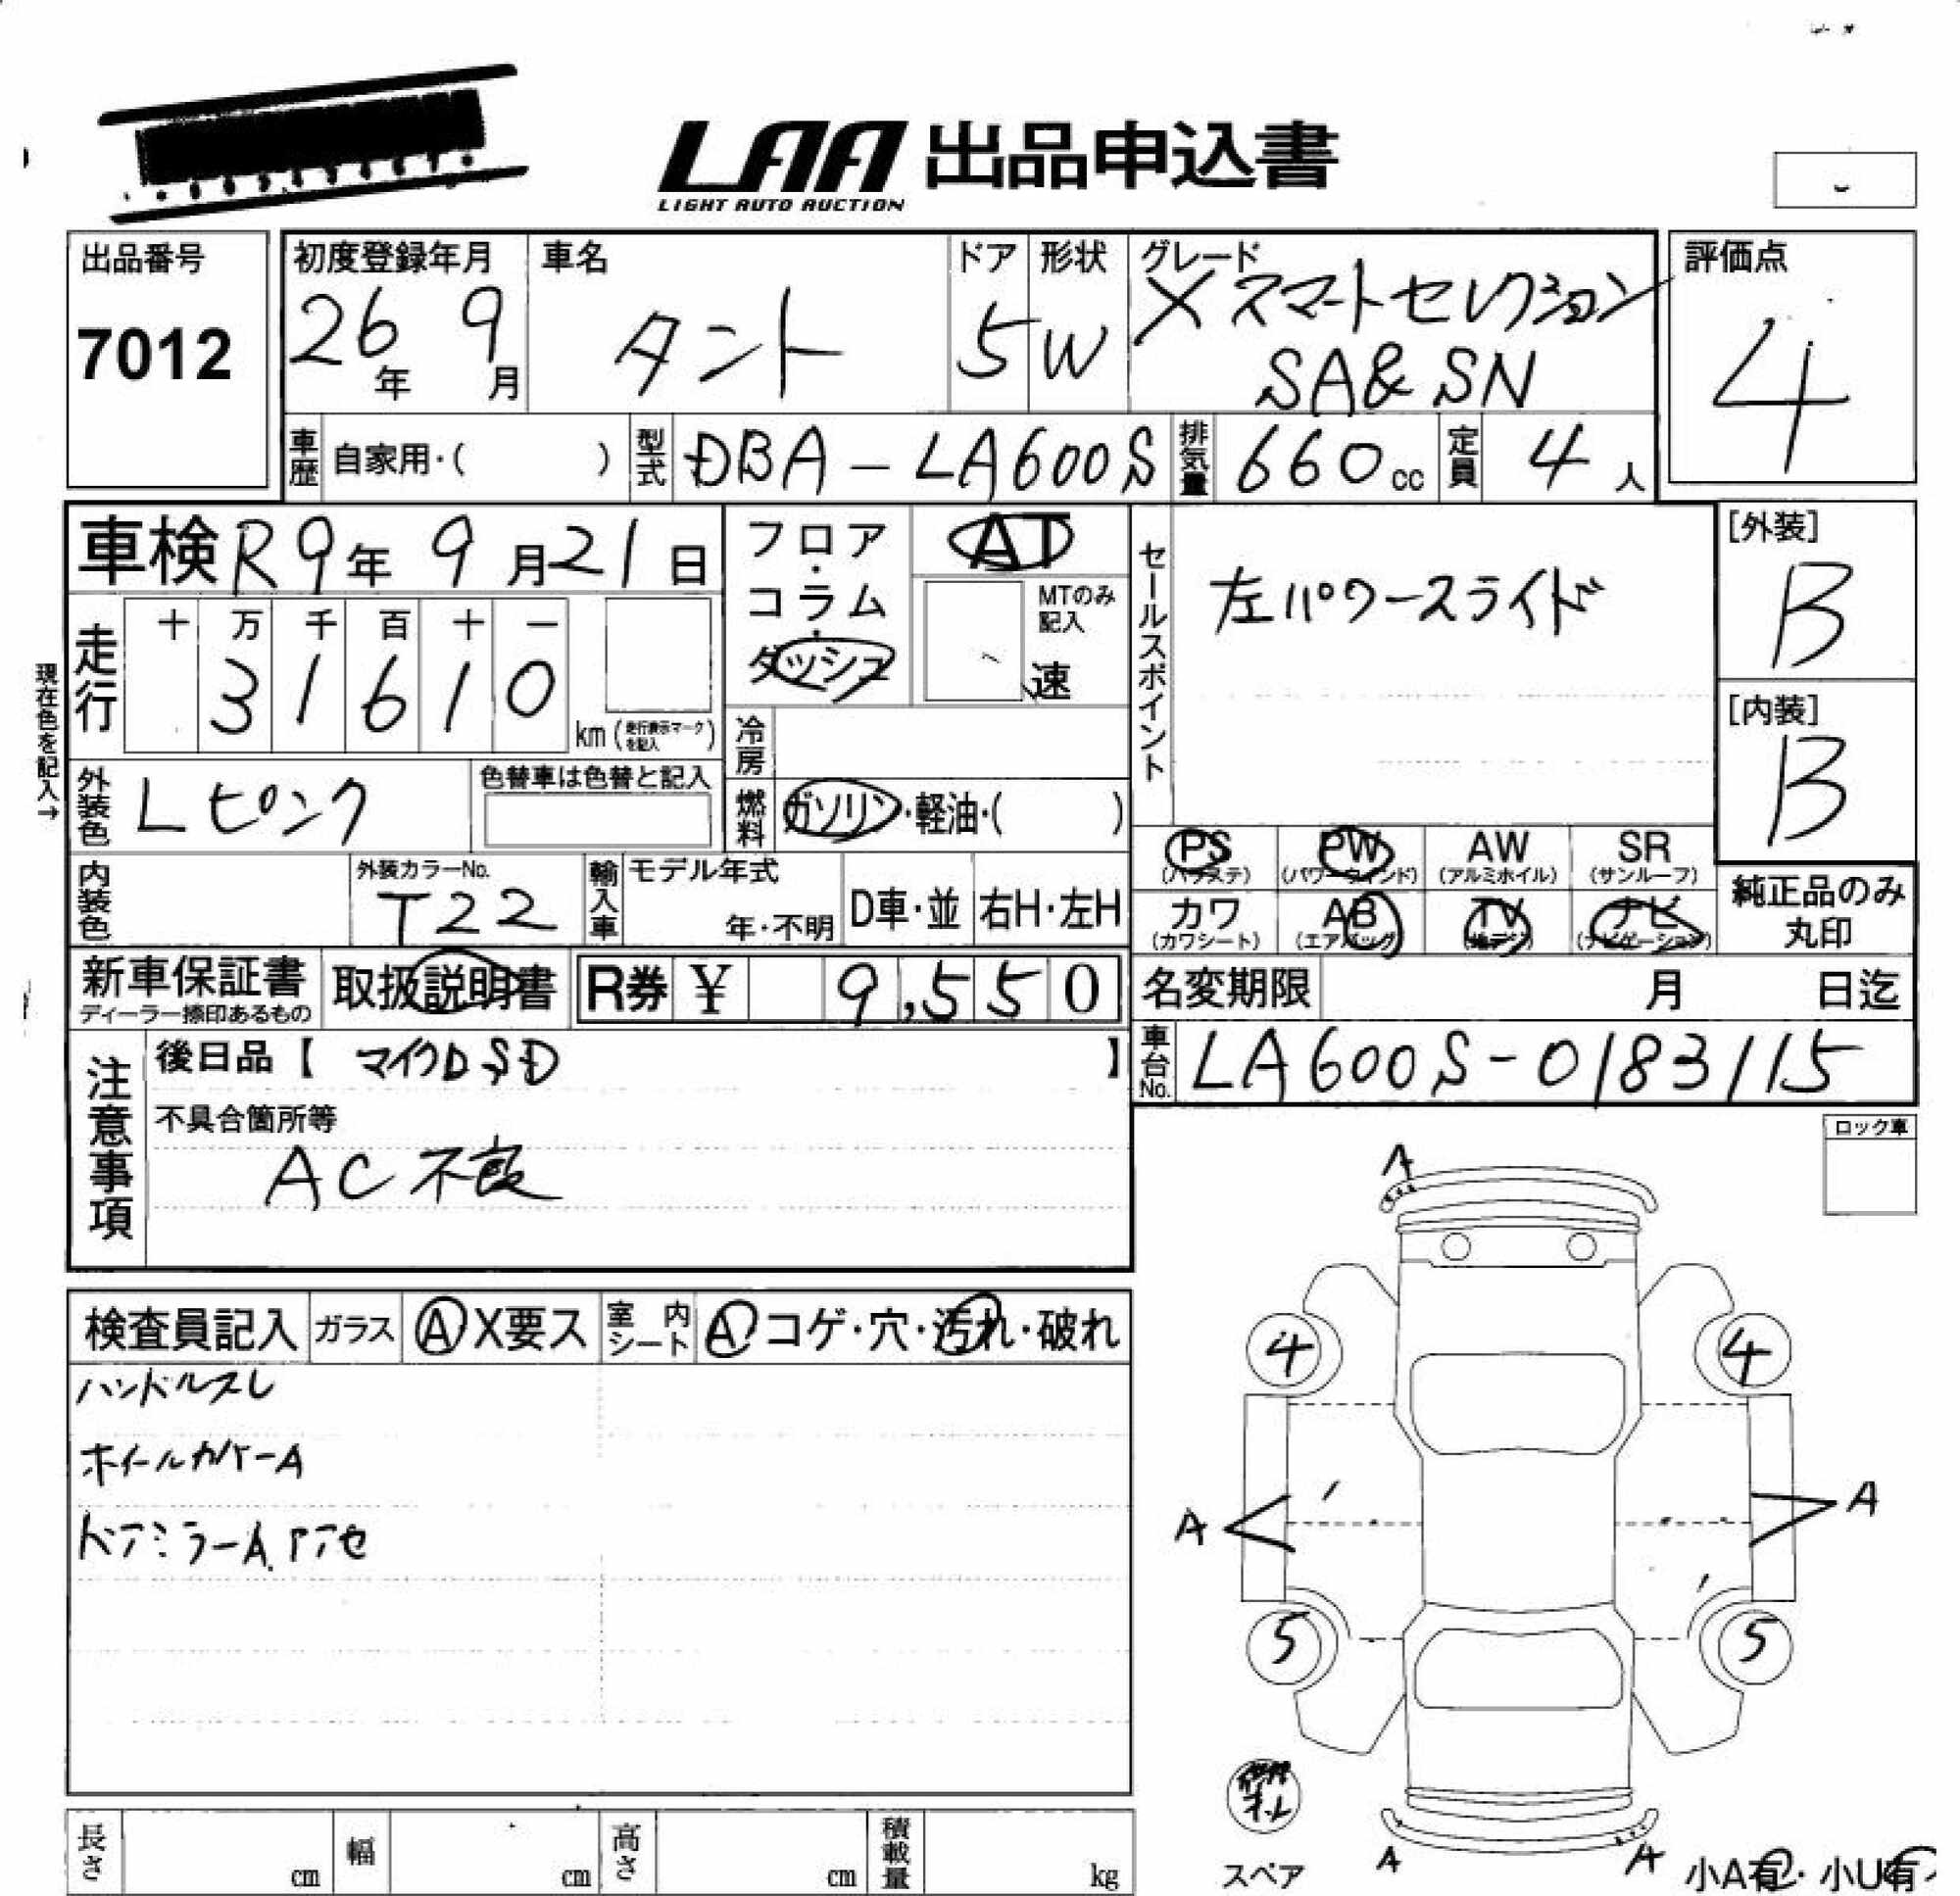 LAA 出品申込書
LIGHT AUTO AUCTION
出品番号
7012
初度登録年月
26年 9月
車名
タント
ドア
5
形状
W
グレード
X スマートセレクション
SA&SN
評価点
4
車歴 自家用・( )
型式 DBA-LA600S
排気量 660cc
定員 4人
車検 R9年 9月21日
走行 十 万 千 百 十 一
3 1 6 1 0
km (走行表示マークを記入)
現在色を記入→
外装色 Lピンク
色替車は色替と記入
内装色
外装カラーNo.
T22
フロア・コラム・ダッシュ
AT
MTのみ記入
速
冷房
燃料 ガソリン・軽油・( )
輸入車 モデル年式
年・不明
D車・並 右H・左H
セールスポイント
左パワースライド
[外装]
B
[内装]
B
PS PW AW SR
(パワステ) (パワーウインド) (アルミホイル) (サンルーフ)
カワ AB TV ナビ
(カワシート) (エアバッグ) (地デジ) (ナビゲーション)
純正品のみ
丸印
新車保証書
ディーラー捺印あるもの
取扱説明書
R券 ¥ 9,550
名変期限 月 日迄
車台No. LA600S-0183115
注意事項
後日品【 マイクロSD 】
不具合箇所等
AC不良
ロック車
検査員記入 ガラス A X要ス 室内シート A コゲ・穴・汚れ・破れ
ハンドルスレ
ホイールカバーA
ドアミラーA アセ
A
4 4
A A
5 5
スペア
A A
小A有・小U有
長さ cm 幅 cm 高さ cm 積載量 kg